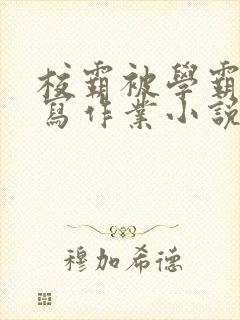 校霸被學霸
寫作業小說
穆加希德